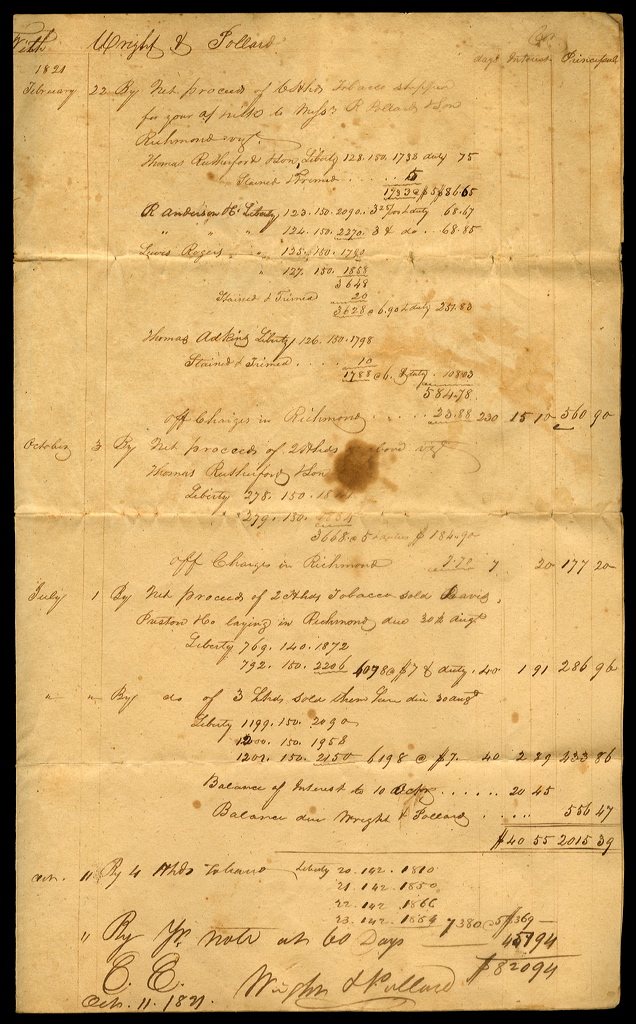 With Wright & Pollard
days Interest Principal
1821
February 22 By Net proceeds of 6 Hhds Tobacco shipped
for your a/c with to Messrs R Pollard & Son
Richmond viz.
Thomas Rutherford & Son, Liberty 128. 150. 1738 duty 75
Stained & Trimed . . . . 5
1733 @ $5 $86.65
R Anderson & Co. Liberty, 123. 150. 2090. 3 25/100 & duty 68.67
" " " 124. 150. 2270. 3 & do . 68.85
Lewis Rogers " " 125. 150. 1790
" 127. 150. 1858
3648
Stained & Trimed 20
3628 @ 6.90 & duty 251.83
Thomas Adkins Liberty 126. 150. 1798
Stained & Trimed . . . . 10
1788 @ 6. & duty . 108.03
584.78
off Charges in Richmond . . . . 23.88 230 15 10 560 90
October 3 By Net proceeds of 2 Hhds above viz
Thomas Rutherford & Son
Liberty 278. 150.
279. 150. 1834
3668 @ 5 & duties $ 184.90
off Charges in Richmond 7.70 7 20 177 20
July 1 By Net proceeds of 2 Hhds Tobacco sold Davis,
Preston & Co laying in Richmond due 30th augt
Liberty 769. 140. 1872
792. 150. 2206 4078 @ $7 & duty . 40 1 91 286 96
" " By do of 3 Hhds sold them Same due 30 augt
Liberty 1199. 150. 2090
1200. 150. 1958
1201. 150. 2150 6198 @ $7. 40 2 89 433 86
Balance of Interest to 10 Octr . . . . . . 20 45
Balance due Wright & Pollard . . . . 556 47
$ 40 55 2015 39
Octr. 11 By 4 Hhds Tobacco Liberty 20. 142. 1810
21. 142. 1850
22. 142. 1866
23. 142. 1854 7380 @ 5 $ 369 —
" By Yr note at 60 Days 451 94
$ 820 94
E. E.
Octr. 11. 1821. Wright & Pollard